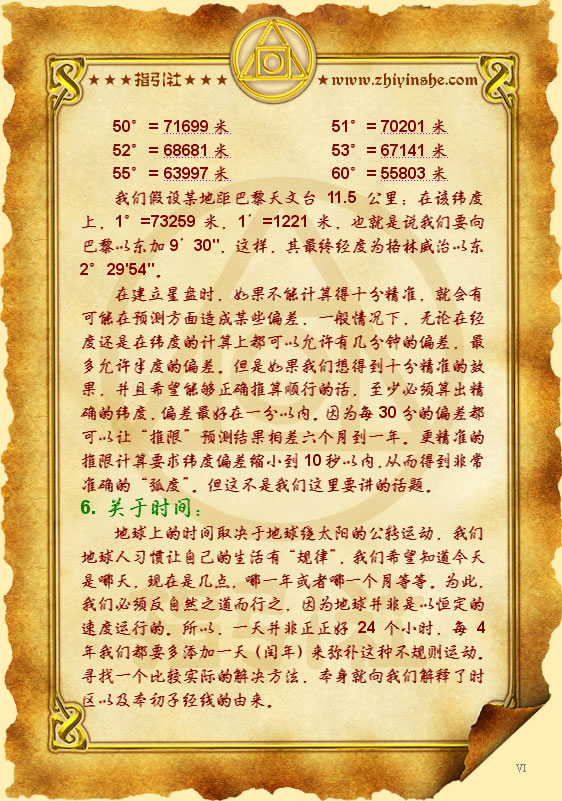 ★★★指引社★★★ ★www.zhiyinshe.com
50° = 71699 米 51° = 70201 米
52° = 68681 米 53° = 67141 米
55° = 63997 米 60° = 55803 米
我们假设某地距巴黎天文台 11.5 公里：在该纬度
上，1° =73259 米，1′ =1221 米，也就是说我们要向
巴黎以东加 9′ 30"，这样，其最终经度为格林威治以东
2° 29'54"。
在建立星盘时，如果不能计算得十分精准，就会有
可能在预测方面造成某些偏差，一般情况下，无论在经
度还是在纬度的计算上都可以允许有几分钟的偏差，最
多允许半度的偏差。但是如果我们想得到十分精准的效
果，并且希望能够正确推算顺行的话，至少必须算出精
确的纬度，偏差最好在一分以内。因为每 30 分的偏差都
可以让“推限”预测结果相差六个月到一年。更精准的
推限计算要求纬度偏差缩小到 10 秒以内，从而得到非常
准确的“弧度”。但这不是我们这里要讲的话题。
6. 关于时间：
地球上的时间取决于地球绕太阳的公转运动，我们
地球人习惯让自己的生活有“规律”，我们希望知道今天
是哪天，现在是几点，哪一年或者哪一个月等等。为此，
我们必须反自然之道而行之，因为地球并非是以恒定的
速度运行的。所以，一天并非正正好 24 个小时，每 4
年我们都要多添加一天（闰年）来弥补这种不规则运动。
寻找一个比较实际的解决方法，本身就向我们解释了时
区以及本初子经线的由来。
VI